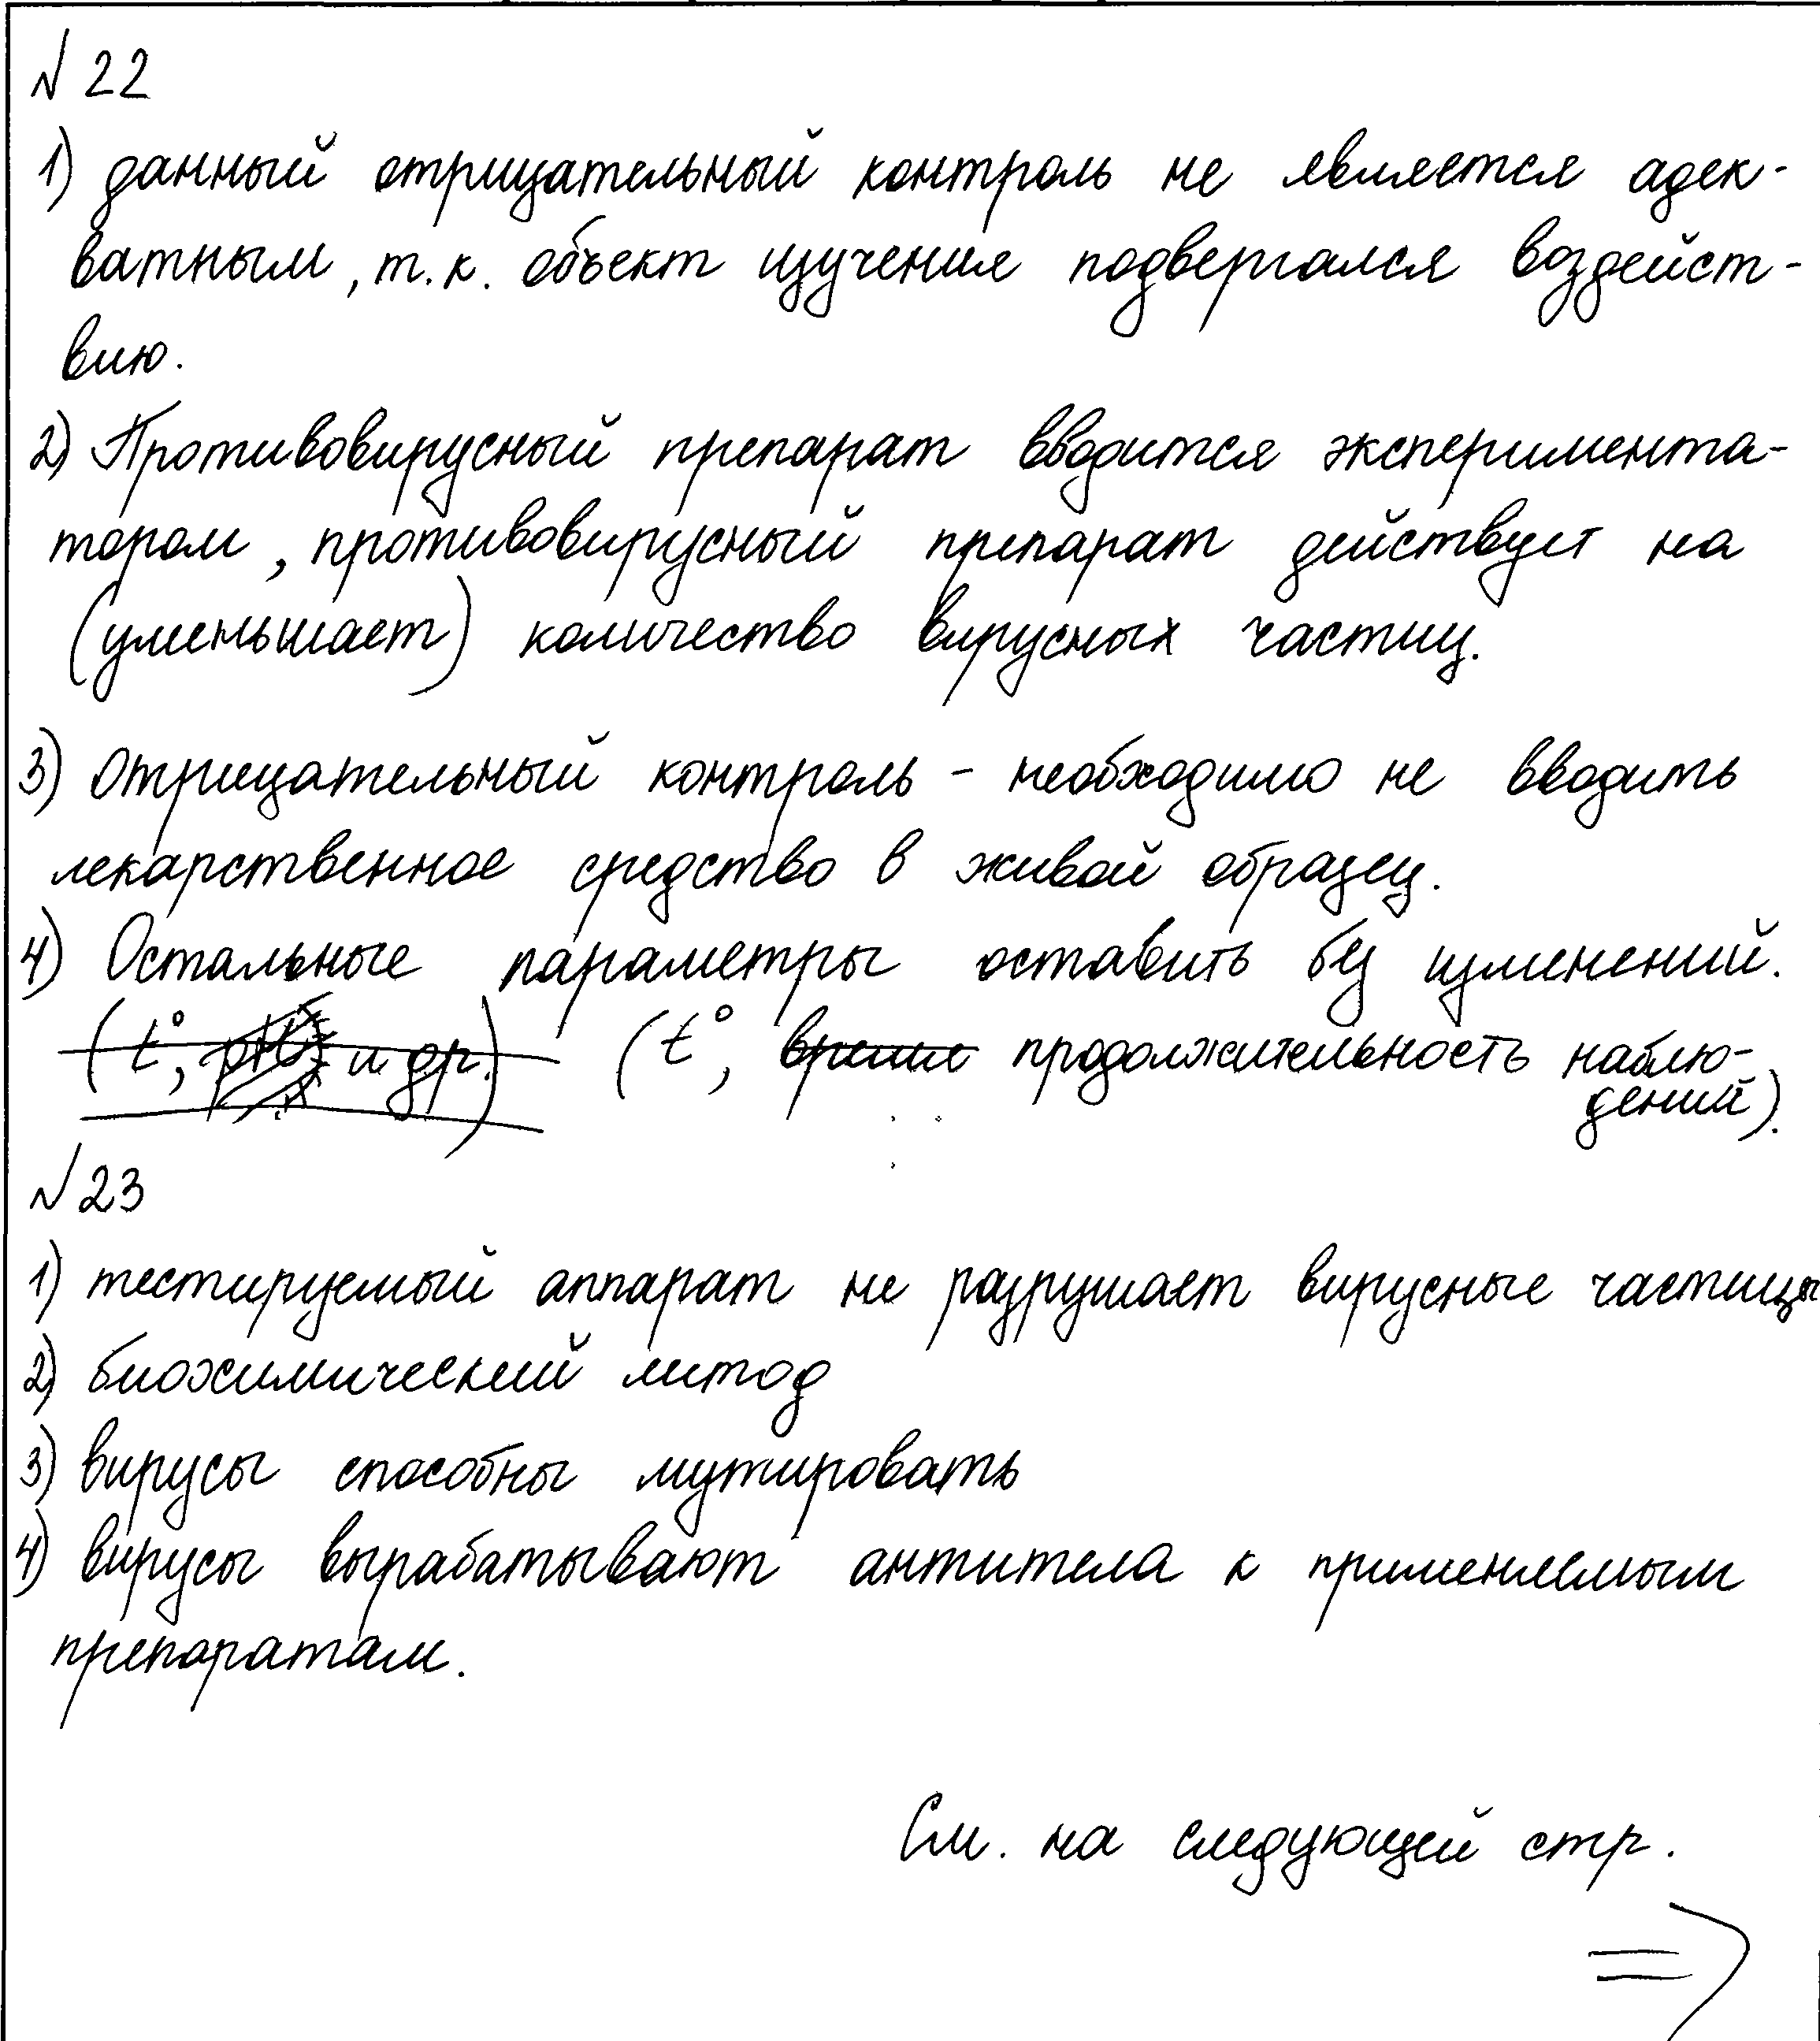 √ 22
1) данный отрицательный контроль не является адек-
ватным, т.к. объект изучения подвергался воздейст-
вию.
2) Противовирусный препарат вводится эксперимента-
тором, противовирусный препарат действует на
(уменьшает) количество вирусных частиц.
3) Отрицательный контроль - необходимо не вводить
лекарственное средство в живой образец.
4) Остальные параметры оставить без изменений.
(t°, и др.) (t°, время продолжительность наблю-
дений).
√ 23
1) тестируемый аппарат не разрушает вирусные частицы
2) биохимический метод
3) вирусы способны мутировать
4) вирусы вырабатывают антитела к применяемым
препаратам.
См. на следующей стр.
=>